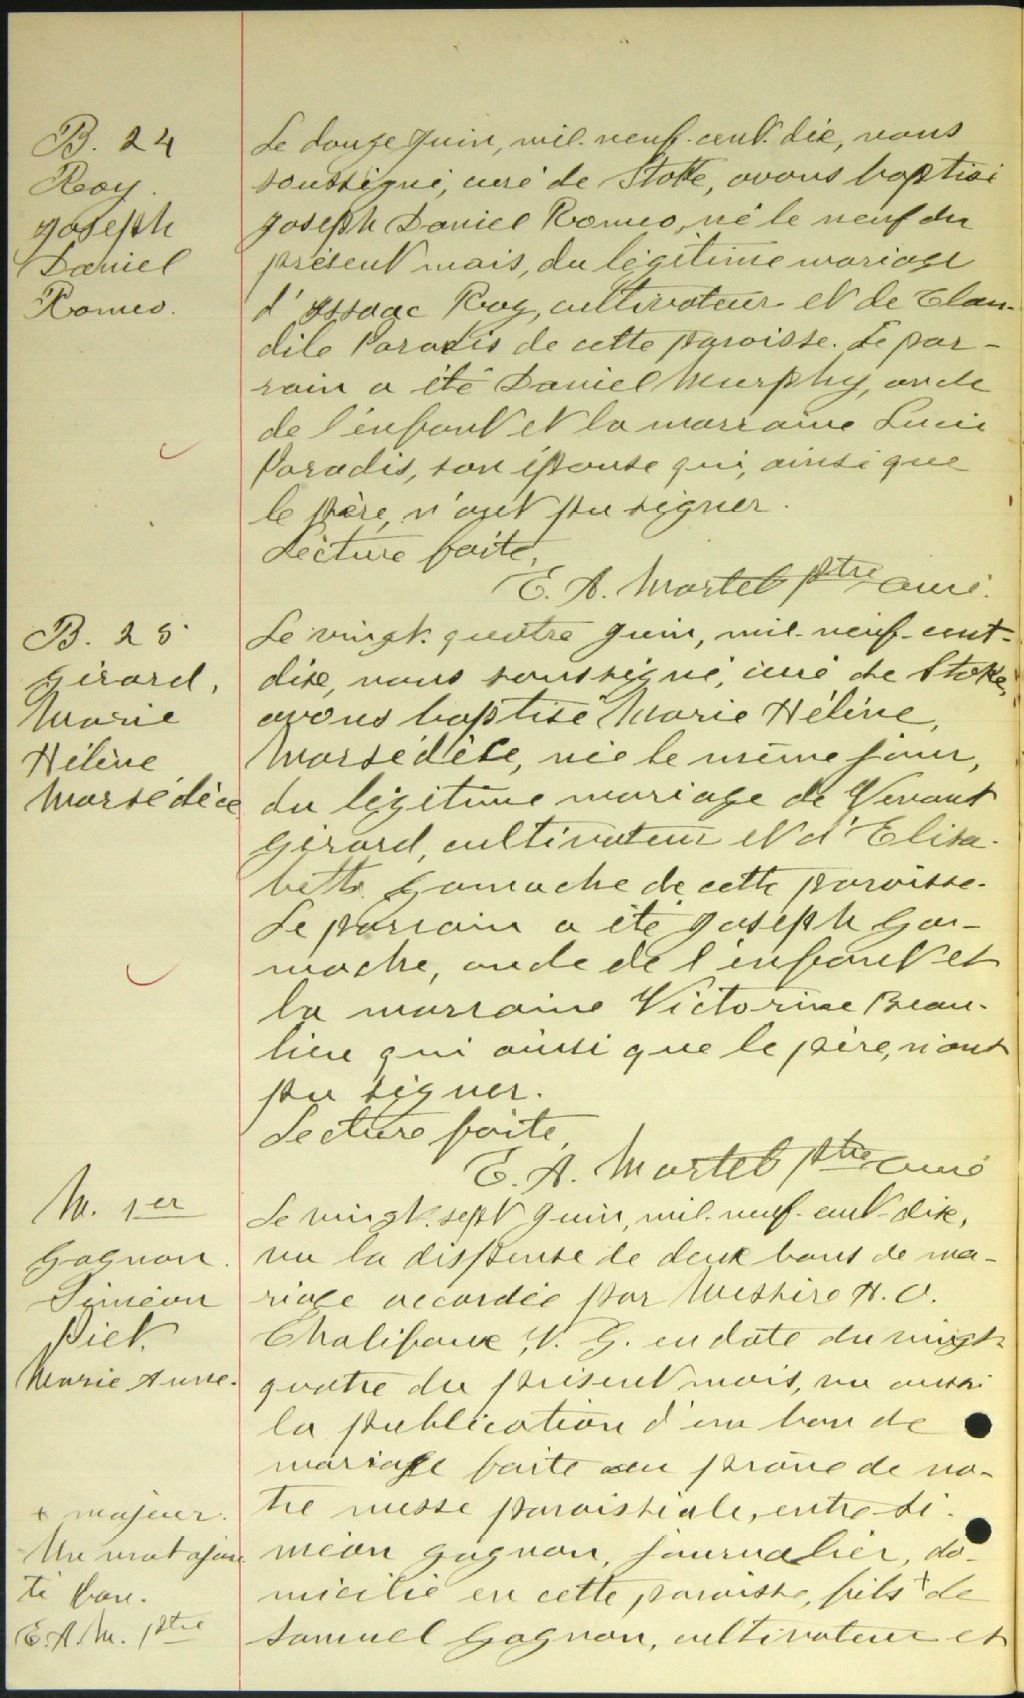 B. 24
Roy.
Joseph
Daniel
Romeo.
Le douze Juin, mil-neuf-cent-dix, nous
soussigné, curé de Stoke, avons baptisé
Joseph Daniel Romeo, né le neuf du
présent mois, du légitime mariage
d'Issaac Roy, cultivateur et de Clau-
dile Paradis de cette paroisse. Le par-
rain a été Daniel Murphy, oncle
de l'enfant et la marraine Lucie
Paradis, son épouse qui, ainsi que
le père, n'ont pu signer.
Lecture faite,
E. A. Martel ptre curé.
B. 25
Girard,
Marie
Hélène
Marsédèce
Le vingt-quatre Juin, mil-neuf-cent-
dix, nous soussigné, curé de Stoke,
avons baptisé Marie Hélène,
Marsédèce, née le même jour,
du légitime mariage de Venant
Girard, cultivateur et d'Elisa-
beth Gamache de cette paroisse.
Le parrain a été Joseph Ga-
mache, oncle de l'enfant et
la marraine Victorine Beau-
lieu qui ainsi que le père, n'ont
pu signer.
Lecture faite,
E. A. Martel ptre curé
M. 1er
Gagnon.
Siméon
Piet.
Marie Anne.
Le vingt-sept Juin, mil-neuf-cent-dix,
vu la dispense de deux bans de ma-
riage accordée par Messire H. O.
Chalifoux, V. G. en date du vingt-
quatre du présent mois, vu aussi
la publication d'un ban de
mariage faite au prône de no-
tre messe paroissiale, entre Si-
méon Gagnon, journalier, do-
micilié en cette paroisse, fils + de
Samuel Gagnon, cultivateur et
+ majeur.
Un mot ajou
té bon.
E. A. M. ptre